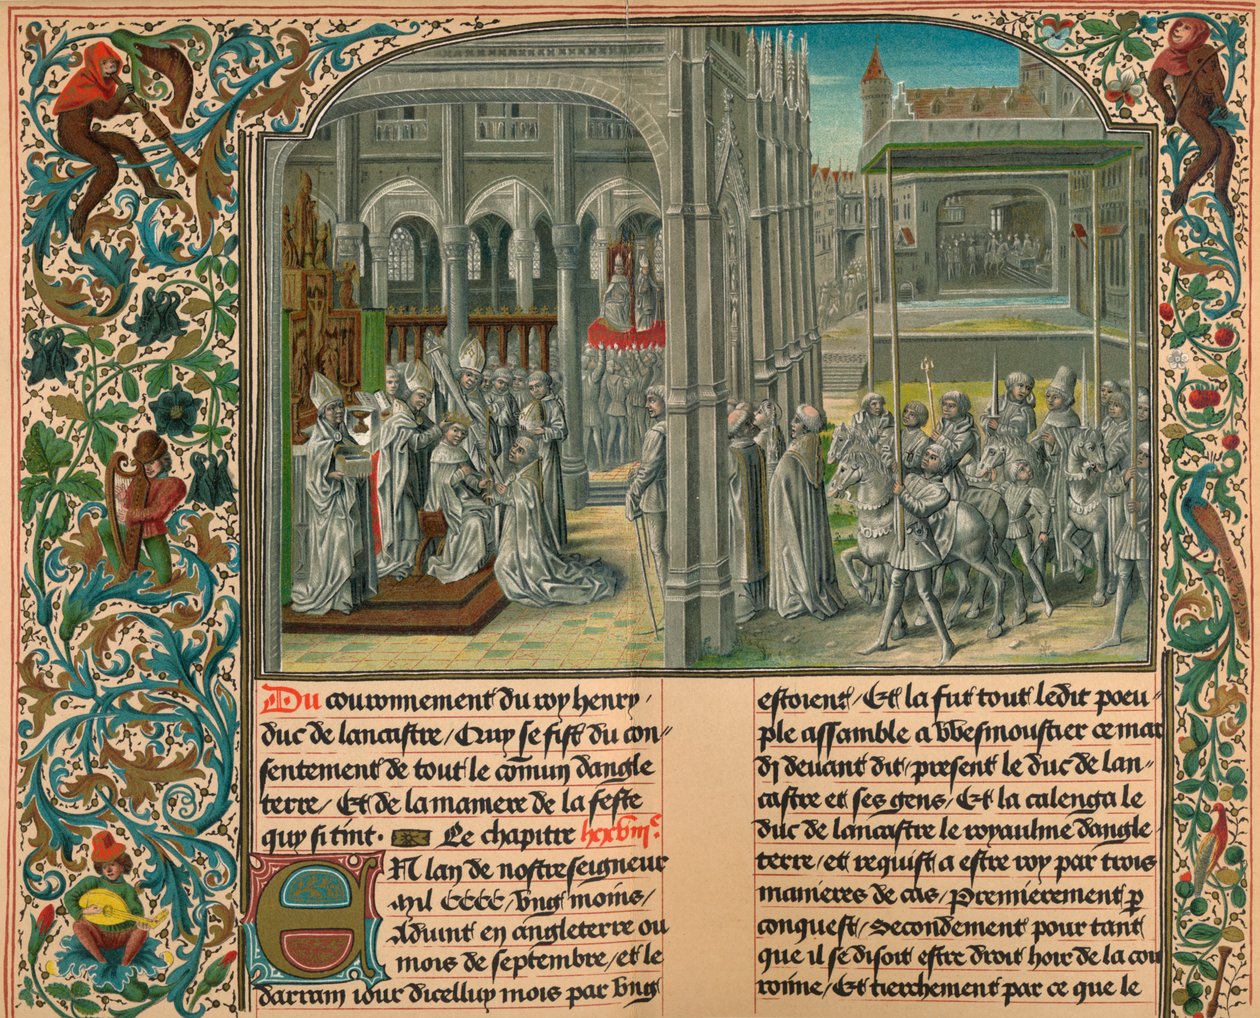 Du couronnement du roy henry /
duc de lancastre / Quy se fist du con //
sentement de tout le comun dangle
terre / Et de la maniere de la feste
quy si tint · Le chapitre lxxviiiᶜ.
EN lan de nostre seigneur
mil CCCC / vng moins /
Aduint en angleterre ou
mois de septembre / et le
darrain iour dicelluy mois par vng
estoient / Et la fut tout ledit poeu //
ple assamble a Wesmoustier ce mar
di deuant dit / present le duc de lan //
castre et ses gens / Et la calenga le
duc de lancastre le royaulme dangle
terre / et requist a estre roy par trois
manieres de cas / Premierement p̲
conquest / Secondement pour tant
que il se disoit estre droit hoir de la cou
ronne / Et tierchement par ce que le